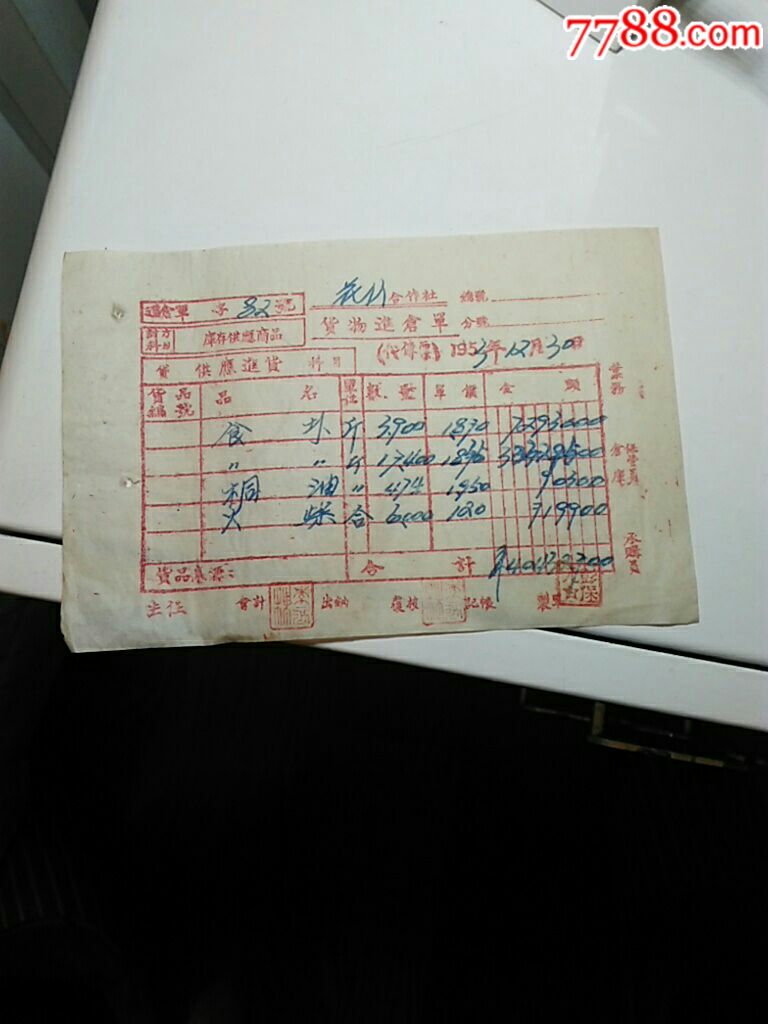 7788.com
進倉單 字 32 號
花竹合作社 總號
對方科目 庫存供應商品
貨物進倉單 分號
貸 供應進貨 科目
(代傳票) 1953年12月30日
貨品編號 品名 單位 數量 單價 金額
食 斤 3900 1870 7293000
〃 〃 斤 17400
桐油 〃 1950 90300
火柴 合 6000 120 719900
貨品來源: 合計
業務 倉庫 保管員 承購員
主任 會計 出納 覆核 記帳 製單